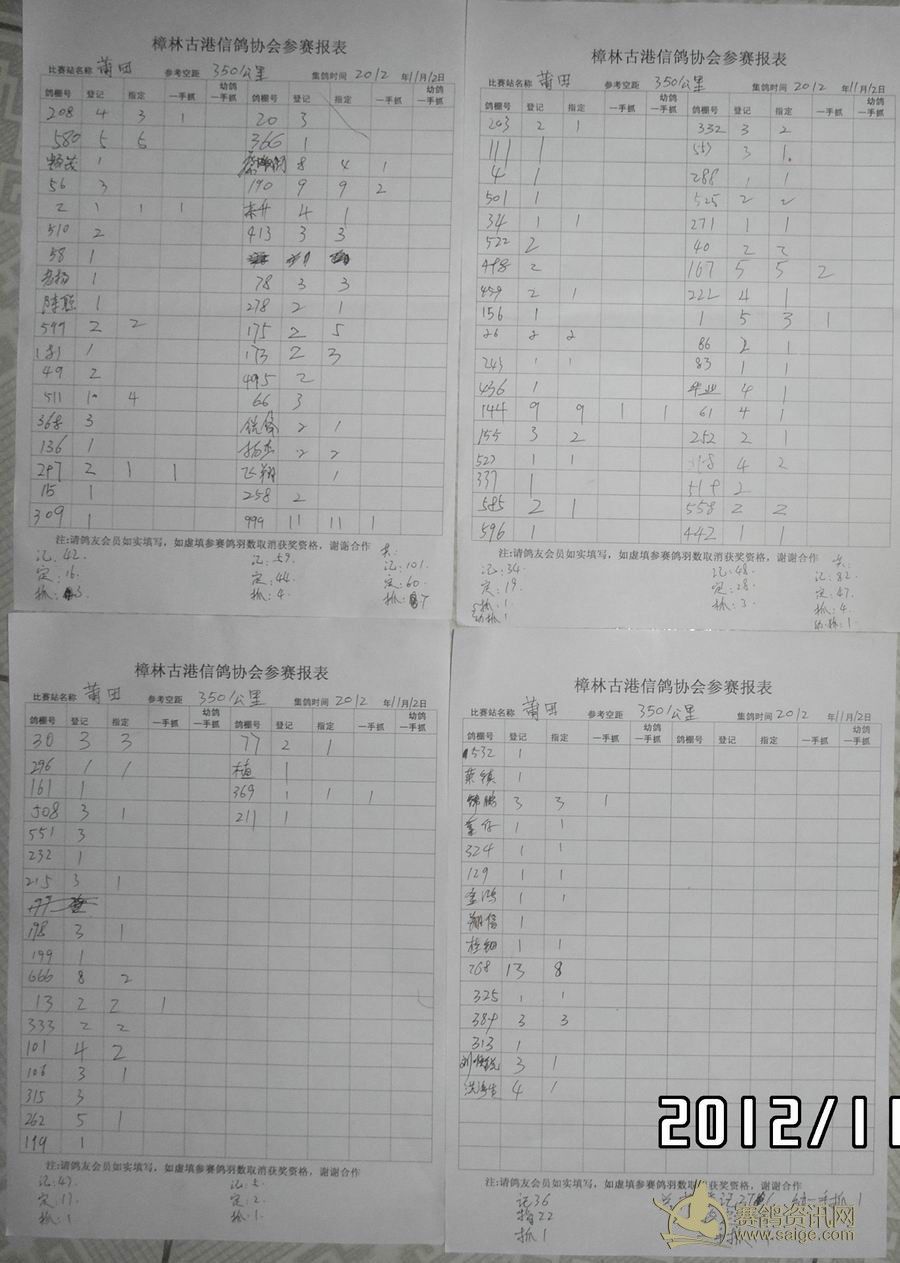 樟林古港信鸽协会参赛报表
比赛站名称 莆田 参考空距 350公里 集鸽时间 2012 年11月2日
鸽棚号 登记 指定 一手抓 幼鸽一手抓 鸽棚号 登记 指定 一手抓 幼鸽一手抓
208 4 3 1 20 3
580 5 6 366 1
1 8 4 1
56 3 190 9 9 2
2 1 1 1 4 1
510 2 413 3 3
58 1
1 78 3 3
1 278 2 1
599 2 2 175 2 5
181 1 173 2 3
49 2 495 2
511 10 4 66 3
368 3 2 1
136 1 2 2
297 2 1 1 飞翔 1
15 1 258 2
309 1 999 11 11 1
注:请鸽友会员如实填写，如虚填参赛鸽羽数取消获奖资格，谢谢合作
记:42. 记:59. 共:
定:16. 定:44. 记:101.
抓:3 抓:4. 定:60.
樟林古港信鸽协会参赛报表
比赛站名称 莆田 参考空距 350公里 集鸽时间 2012 年11月2日
鸽棚号 登记 指定 一手抓 幼鸽一手抓 鸽棚号 登记 指定 一手抓 幼鸽一手抓
203 2 1 332 3 2
111 1 3 1
4 1 288 1 1
501 1 525 2 2
34 1 1 271 1 1
522 2 40 2 2
498 2 167 5 5 2
459 2 1 222 4 1
156 1 1 5 3 1
26 2 2 86 2 1
243 1 1 83 1 1
436 1 4 1
144 9 9 1 1 61 4 1
155 3 2 252 2 1
527 1 1 4 2
337 1 519 2
585 2 1 558 2 2
596 1 442 1
注:请鸽友会员如实填写，如虚填参赛鸽羽数取消获奖资格，谢谢合作
记:34. 记:48. 共
定:19. 定:28. 记:82.
抓:1. 抓:3. 定:47.
幼抓1 抓:4.
幼抓:1.
樟林古港信鸽协会参赛报表
比赛站名称 莆田 参考空距 350公里 集鸽时间 2012 年11月2日
鸽棚号 登记 指定 一手抓 幼鸽一手抓 鸽棚号 登记 指定 一手抓 幼鸽一手抓
30 3 3 77 2 1
296 1 1 植 1
161 1 369 1 1 1
508 3 1 211 1
551 3
232 1
215 3 1
198 3 1
199 1
666 8 2
13 2 2 1
333 2 2
101 4 2
106 3 1
315 3
262 5 1
199 1
注:请鸽友会员如实填写，如虚填参赛鸽羽数取消获奖资格，谢谢合作
记:47. 记:5.
定:17. 定:2.
抓:1 抓:1.
樟林古港信鸽协会参赛报表
比赛站名称 莆田 参考空距 350公里 集鸽时间 2012 年11月2日
鸽棚号 登记 指定 一手抓 幼鸽一手抓 鸽棚号 登记 指定 一手抓 幼鸽一手抓
532 1
1
锦鹏 3 3 1
1 1
324 1 1
129 1 1
金鸿 1 1
翔信 1
1 1
768 13 8
325 1 1
384 3 3
313 1
3 1
4 1
注:请鸽友会员如实填写，如虚填参赛鸽羽数取消获奖资格，谢谢合作
记36
指22
抓1
2012/11
赛鸽资讯网
www.saige.com